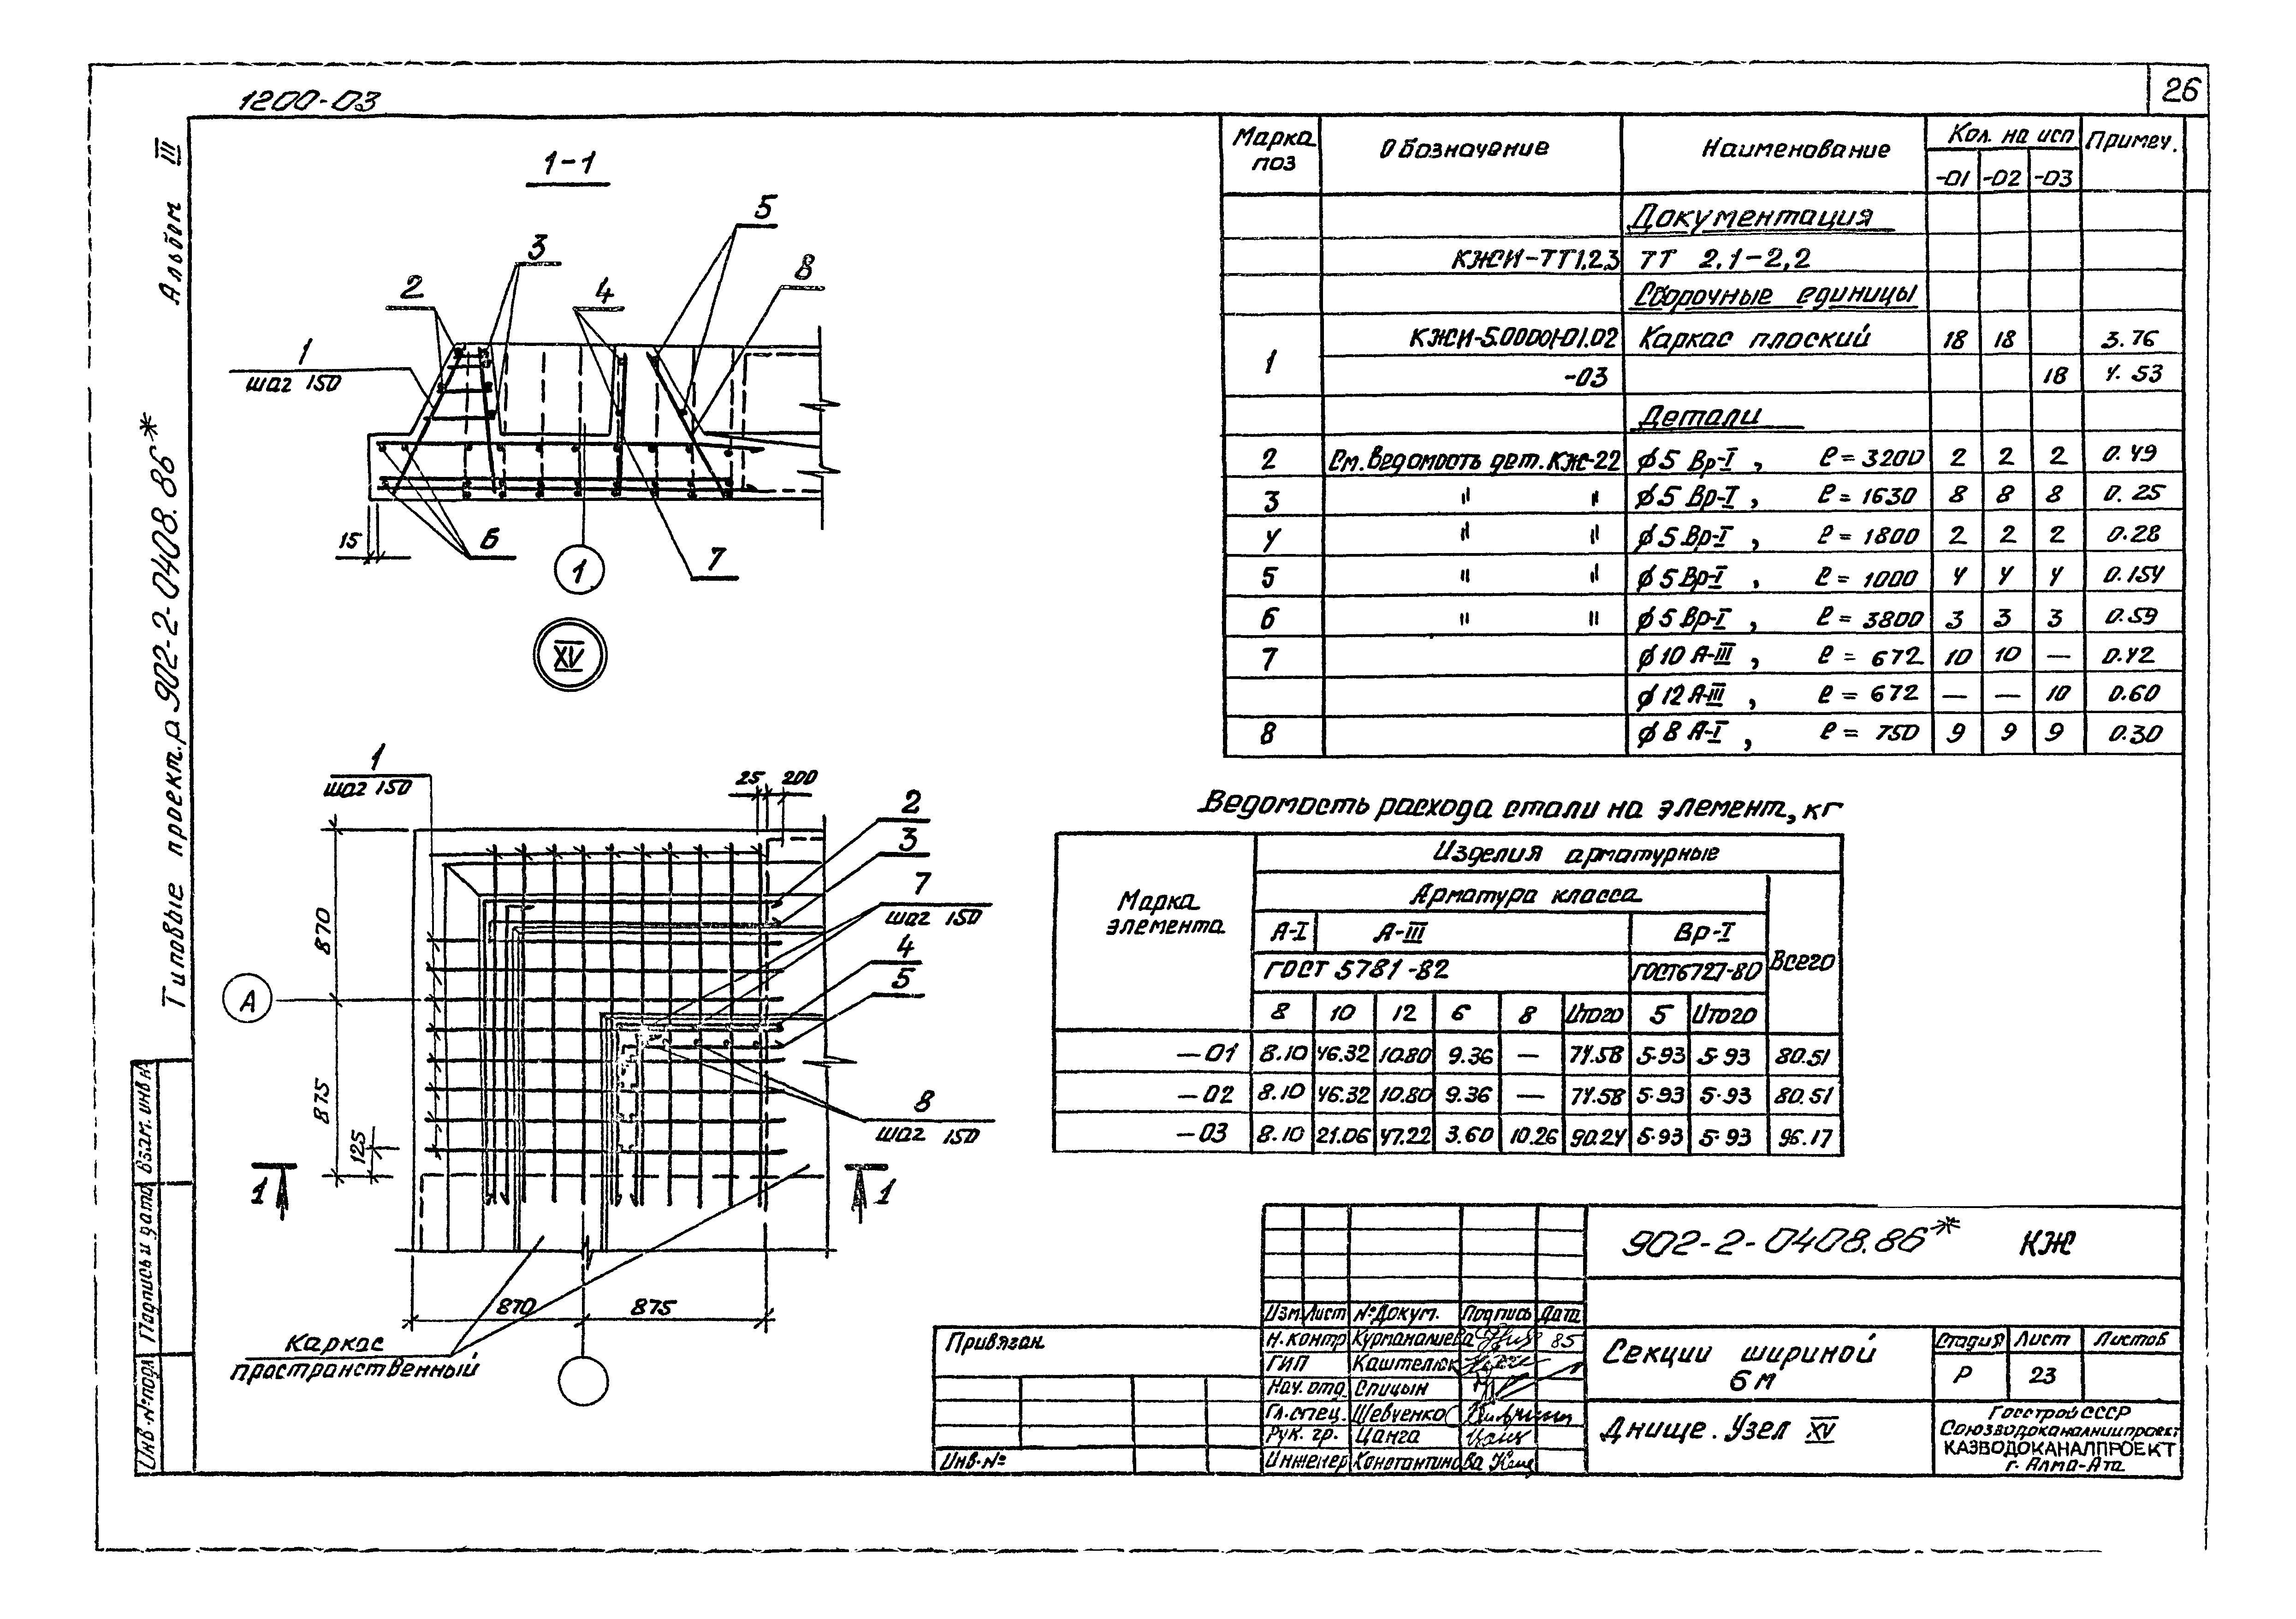 1200-03
26
Альбом III
Типовые проект.р 902-2-0408.86*
1-1
5
3
8
2
4
1
шаг 150
15
6
7
1
XV
1
шаг 150
25 200
2
3
7
шаг 150
4
5
8
шаг 150
870
А
875
125
1
1
870
875
Каркас
пространственный
Марка
поз
Обозначение
Наименование
Кол. на исп
Примеч.
-01 -02 -03
Документация
КЖИ-ТТ1,2,3 ТТ 2.1-2,2
Сборочные единицы
1 КЖИ-5.00001-01.02 Каркас плоский 18 18 3.76
-03 18 4.53
Детали
2 См. Ведомость дет. КЖ-22 ϕ5 Вр-I, ℓ=3200 2 2 2 0.49
3 " " ϕ5 Вр-I, ℓ=1630 8 8 8 0.25
4 " " ϕ5 Вр-I, ℓ=1800 2 2 2 0.28
5 " " ϕ5 Вр-I, ℓ=1000 4 4 4 0.154
6 " " ϕ5 Вр-I, ℓ=3800 3 3 3 0.59
7 ϕ10 А-III, ℓ=672 10 10 — 0.42
ϕ12 А-III, ℓ=672 — — 10 0.60
8 ϕ8 А-I, ℓ=750 9 9 9 0.30
Ведомость расхода стали на элемент, кг
Марка
элемента
Изделия арматурные
Арматура класса
А-I А-III Вр-I
Всего
ГОСТ 5781-82 ГОСТ6727-80
8 10 12 6 8 Итого 5 Итого
-01 8.10 46.32 10.80 9.36 — 74.58 5.93 5.93 80.51
-02 8.10 46.32 10.80 9.36 — 74.58 5.93 5.93 80.51
-03 8.10 21.06 47.22 3.60 10.26 90.24 5.93 5.93 96.17
902-2-0408.86* КЖ
Изм Лист №Докум. Подпись Дата
Н.контр Курманалиева 85
ГИП Каштелюк
Нач. отд. Спицын
Гл.спец. Шевченко
Рук. гр. Цанга
Инженер Константинова
Привязан
Инв.№
Секции шириной
6м
Стадия Лист Листов
Р 23
Днище. Узел XV
Госстрой СССР
Союзводоканалниипроект
КАЗВОДОКАНАЛПРОЕКТ
г. Алма-Ата
Инв.№подл Подпись и дата Взам. инв.№